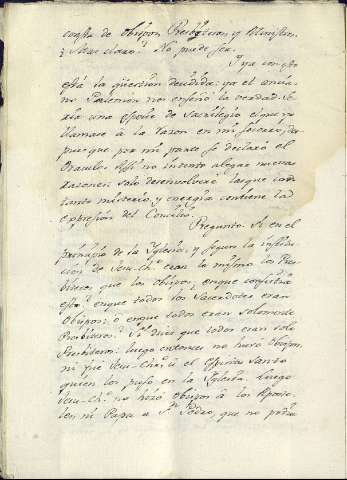 consta de Obispos Presbiteros, y Ministros.
mas claro? No puede ser.
Y ya con esto
está la question decidida: ya el
no nos enseñó la verdad. Se-
ria una especie de Sacrilegio el que yo
llamase à la razon en mi socorro, des-
pues que por mi parte se declaró el
Oraculo. Assi no intento alegar nuevas
razones; solo desenvolveré las que con
tanto misterio, y energia contiene la
expresion del Concilio.
Pregunto. Si en el
principio de la Iglesia, y segun la institu-
cion de Jesu-Chto. eran lo mismo los Pres-
biteros que los Obispos, en que consistia
esto? en que todos los Sacerdotes eran
Obispos: ò en que todos eran solamente
Presbiteros? Si dices que todos eran solo
Presbiteros: luego entonces no hubo Obispos,
ni fue Jesu-Chto. ù el Espiritu Santo
quien los puso en la Iglesia. Luego
Jesu-Chto. no hizo Obispos à los Aposto-
les ni Papa a Sn. Pedro, que no podia